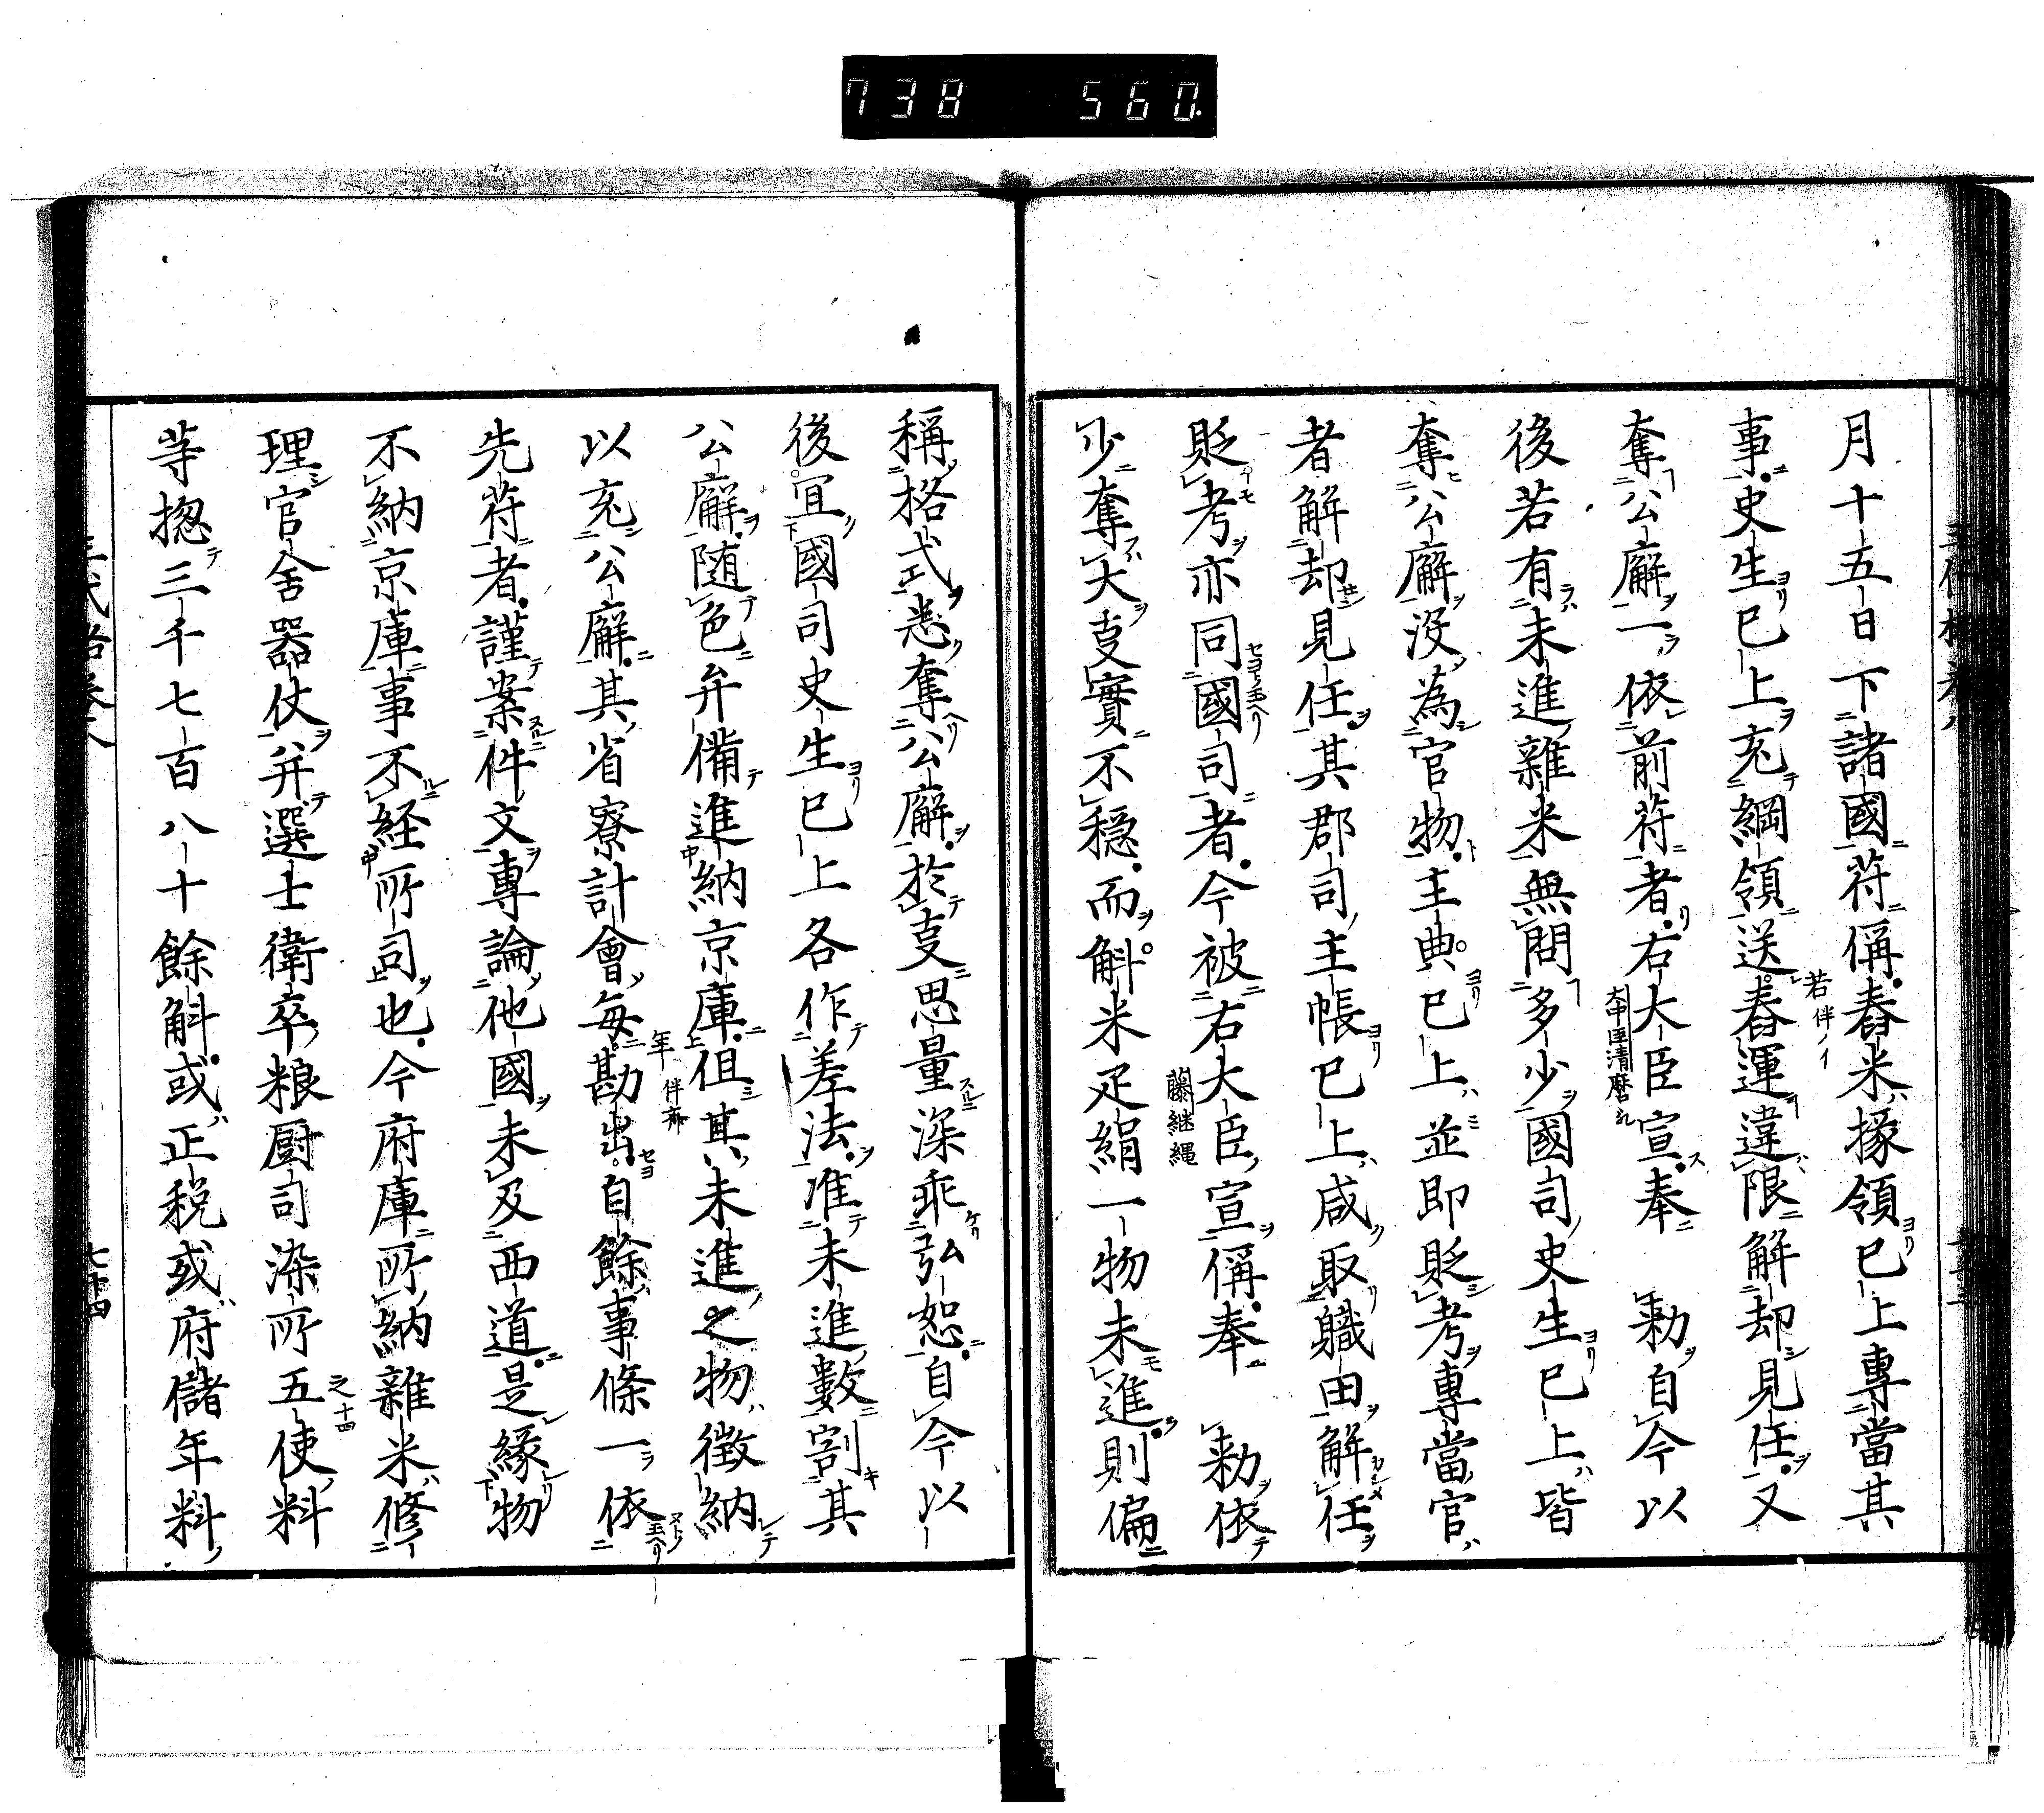 738 560
月十五日下諸國符偁舂米掾領已上專當其
事史生已上充綱領送舂運違限解却見任又
奪公廨一依前符者右大臣宣奉 勅自今以
後若有未進雜米無問多少國司史生已上皆
奪公廨没為官物主典已上並即貶考專當官
者解却見任其郡司主帳已上咸取職田解任
貶考亦同國司者今被右大臣宣偁奉 勅依
少奪大叓實不穏而斛米疋絹一物未進則偏
稱格式悉奪公廨於叓思量深乖弘恕自今以
後宜國司史生已上各作差法准未進數割其
公廨随色弁備進納京庫但其未進之物徴納
以充公廨其省寮計會毎勘出自餘事條一依
先符者謹案件文專論他國未及西道是緣物
不納京庫事不経所司也今府庫所納雜米修
理官舍器仗并選士衛卒粮厨司染所五使料
等揔三千七百八十餘斛或正税或府儲年料
七十四